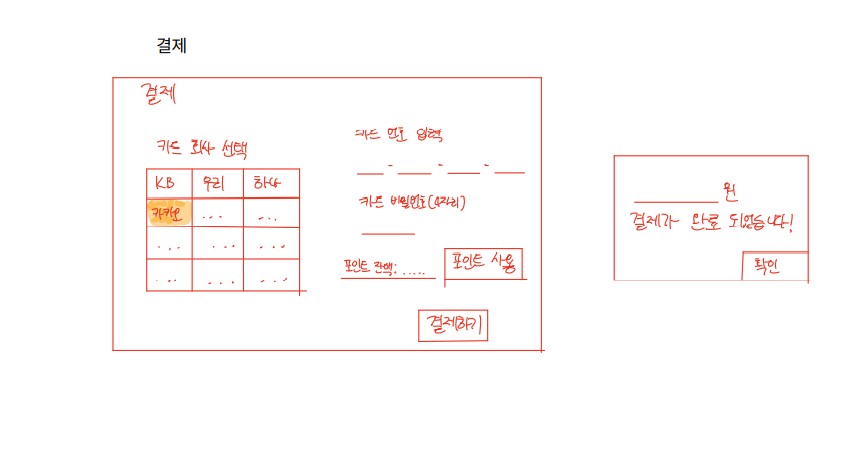 결제
결제
카드 회사 선택
KB 우리 하나
카카오 ... ...
... ... ...
... ... ...
카드 번호 입력
___ - ___ - ___ - ___
카드 비밀번호(4자리)
포인트 잔액: .....
포인트 사용
결제하기
______ 원
결제가 완료 되었습니다!
확인